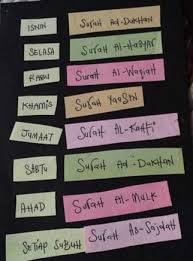 ISNIN Surah Ad-Dukhan
SELASA Surah Al-Hasyar
RABU Surah Al-Waqiah
KHAMIS Surah Yaasin
JUMAAT Surah AL-Kahfi
SABTU Surah Ad-Dukhan
AHAD Surah Al-Mulk
SETIAP SUBUH Surah As-Sajdah